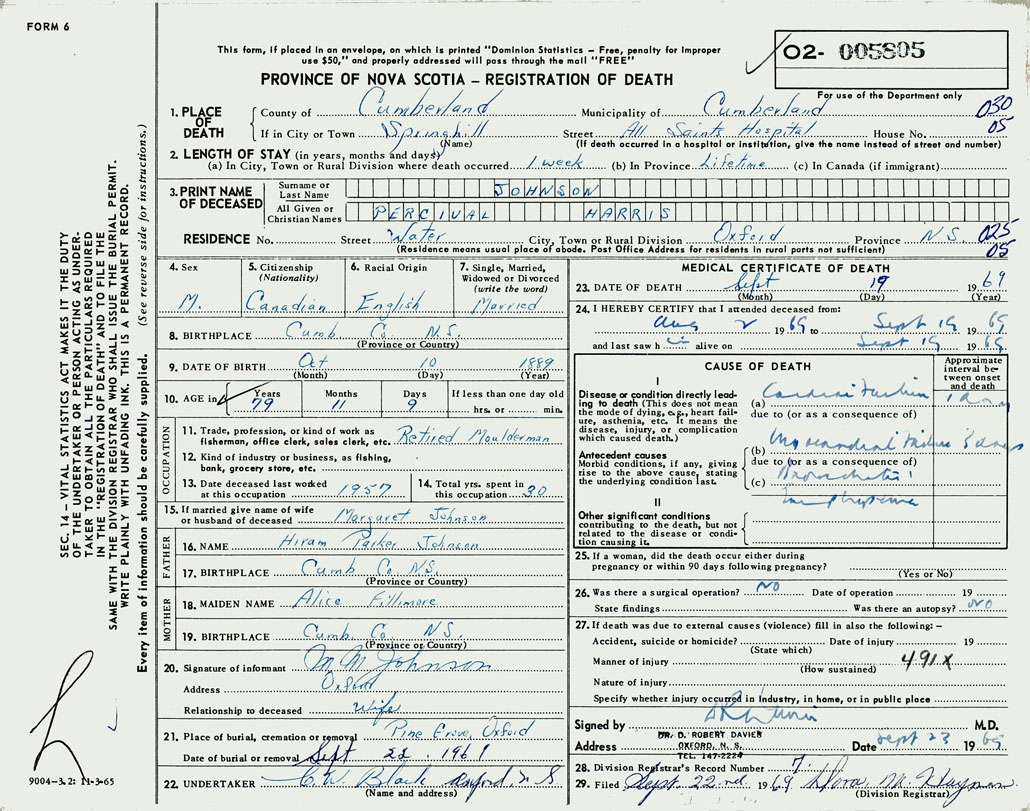 FORM 6
This form, if placed in an envelope, on which is printed "Dominion Statistics – Free, penalty for improper
use $50," and properly addressed will pass through the mail "FREE"
PROVINCE OF NOVA SCOTIA – REGISTRATION OF DEATH
02- 005805
For use of the Department only
SEC. 14 – VITAL STATISTICS ACT MAKES IT THE DUTY
OF THE UNDERTAKER OR PERSON ACTING AS UNDER-
TAKER TO OBTAIN ALL THE PARTICULARS REQUIRED
IN THE "REGISTRATION OF DEATH" AND TO FILE THE
SAME WITH THE DIVISION REGISTRAR WHO SHALL ISSUE THE BURIAL PERMIT.
WRITE PLAINLY WITH UNFADING INK. THIS IS A PERMANENT RECORD.
Every item of information should be carefully supplied. (See reverse side for instructions.)
1. PLACE OF DEATH
County of Cumberland Municipality of Cumberland 030
If in City or Town Springhill Street All Saints Hospital House No. 05
(Name) (If death occurred in a hospital or institution, give the name instead of street and number)
2. LENGTH OF STAY (in years, months and days)
(a) In City, Town or Rural Division where death occurred 1 week (b) In Province Lifetime (c) In Canada (if immigrant)
3. PRINT NAME OF DECEASED
Surname or Last Name JOHNSON
All Given or Christian Names PERCIVAL HARRIS
RESIDENCE No. Street Water City, Town or Rural Division Oxford Province N.S. 025
(Residence means usual place of abode. Post Office Address for residents in rural parts not sufficient) 05
4. Sex 5. Citizenship (Nationality) 6. Racial Origin 7. Single, Married, Widowed or Divorced (write the word)
M. Canadian English Married
8. BIRTHPLACE Cumb Co. N.S.
(Province or Country)
9. DATE OF BIRTH Oct 10 1889
(Month) (Day) (Year)
10. AGE in Years Months Days If less than one day old
79 11 9 hrs. or min.
OCCUPATION
11. Trade, profession, or kind of work as fisherman, office clerk, sales clerk, etc. Retired Moulderman
12. Kind of industry or business, as fishing, bank, grocery store, etc.
13. Date deceased last worked at this occupation 1957 14. Total yrs. spent in this occupation 30
15. If married give name of wife or husband of deceased Margaret Johnson
FATHER
16. NAME Hiram Parker Johnson
17. BIRTHPLACE Cumb Co N.S.
(Province or Country)
MOTHER
18. MAIDEN NAME Alice Fillimore
19. BIRTHPLACE Cumb. Co. N.S.
(Province or Country)
20. Signature of informant M M Johnson
Address Oxford
Relationship to deceased Wife
21. Place of burial, cremation or removal Pine Grove, Oxford
Date of burial or removal Sept 22 1969
22. UNDERTAKER C.W. Black Oxford N S
(Name and address)
9004-3.2: 11-3-65
MEDICAL CERTIFICATE OF DEATH
23. DATE OF DEATH Sept 19 1969
(Month) (Day) (Year)
24. I HEREBY CERTIFY that I attended deceased from:
Aug 2 1969 to Sept 19 1969
and last saw h im alive on Sept 19 1969
CAUSE OF DEATH
Approximate interval between onset and death
I
Disease or condition directly leading to death (This does not mean the mode of dying, e.g., heart failure, asthenia, etc. It means the disease, injury, or complication which caused death.)
(a) Cardiac Failure 1 day
due to (or as a consequence of)
Antecedent causes
Morbid conditions, if any, giving rise to the above cause, stating the underlying condition last.
(b) Myocardial Failure 8 days
due to (or as a consequence of)
(c) Bronchitis
Emphysema
II
Other significant conditions contributing to the death, but not related to the disease or condition causing it.
25. If a woman, did the death occur either during pregnancy or within 90 days following pregnancy?
(Yes or No)
26. Was there a surgical operation? NO Date of operation 19
State findings Was there an autopsy? NO
27. If death was due to external causes (violence) fill in also the following: –
Accident, suicide or homicide? Date of injury 19
(State which)
Manner of injury 491X
(How sustained)
Nature of injury
Specify whether injury occurred in industry, in home, or in public place
Signed by M.D.
DR. D. ROBERT DAVIES
Address OXFORD, N. S. Date Sept 23 1969
TEL. 147-2224
28. Division Registrar's Record Number 7
29. Filed Sept. 22nd 1969 Dora M. Hayman
(Division Registrar)